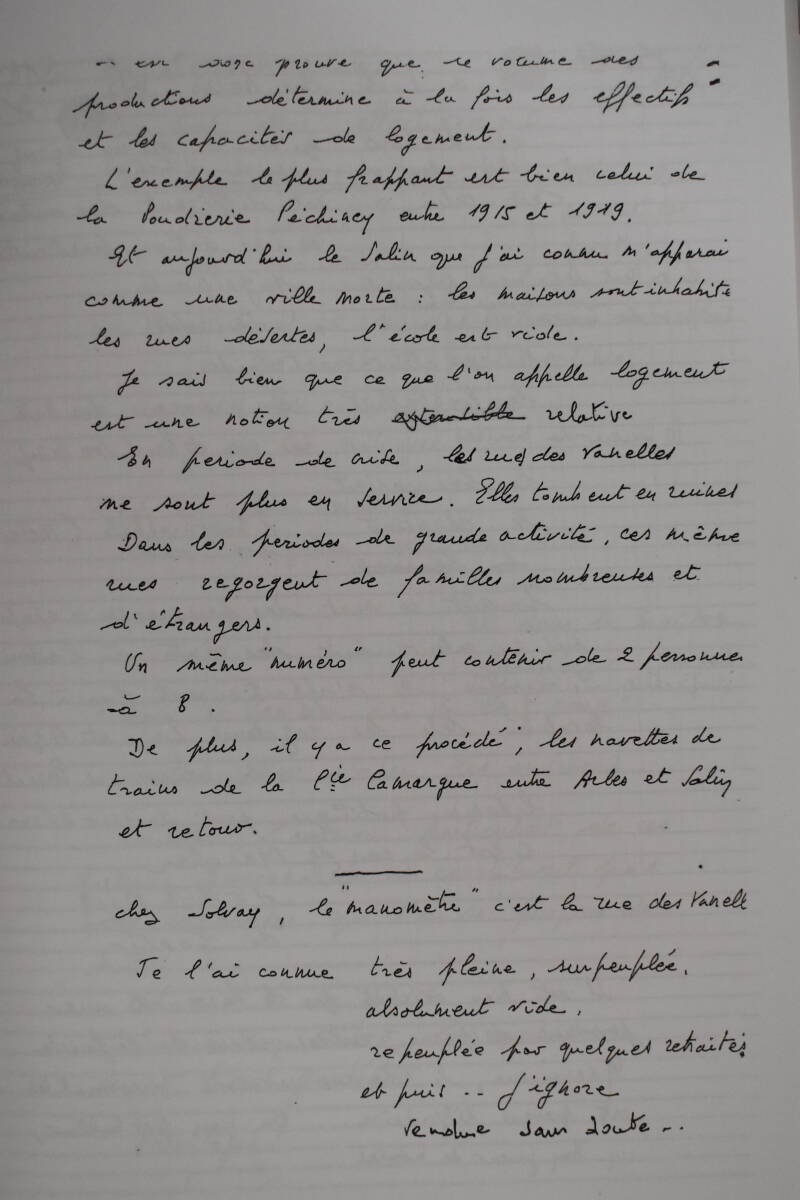 est donc prouvé que le volume des
productions détermine à la fois les effectifs
et les capacités de logement.
L'exemple le plus frappant est bien celui de
la Poudrerie Péchiney entre 1915 et 1919.
Et aujourd'hui le Salin que j'ai connu m'apparai
comme une ville morte : les maisons sont inhabité
les rues désertes, l'école est vide.
Je sais bien que ce que l'on appelle logement
est une notion très extensible relative
En periode de crise, les rues des Vanelles
ne sont plus en service. Elles tombent en ruines
Dans les periodes de grande activité, ces même
rues regorgent de familles nombreuses et
d'étrangers.
Un même "numéro" peut contenir de 2 personnes
à 8.
De plus, il y a ce procédé ; les navettes de
trains de la Cie Camargue entre Arles et Salin
et retour.
chez Solvay, le "manomètre" c'est la rue des Vanell
Je l'ai connue très pleine, surpeuplée,
absolument vide,
repeuplée par quelques retraités
et puis .. j'ignore
Vendue sans doute ..